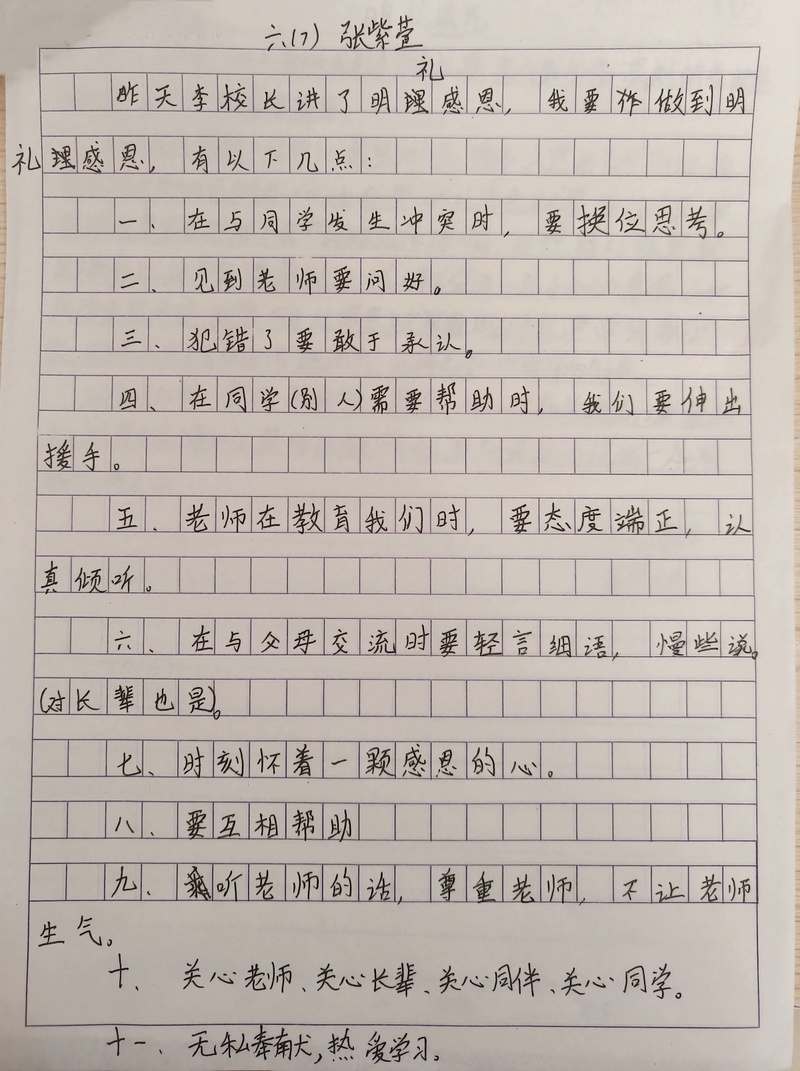 六(7) 张紫萱
礼
昨天李校长讲了明理感恩，我要作做到明
礼理感恩，有以下几点：
一、在与同学发生冲突时，要换位思考。
二、见到老师要问好。
三、犯错了要敢于承认。
四、在同学(别人)需要帮助时，我们要伸出
援手。
五、老师在教育我们时，要态度端正，认
真倾听。
六、在与父母交流时要轻言细语，慢些说。
(对长辈也是)。
七、时刻怀着一颗感恩的心。
八、要互相帮助
九、听老师的话，尊重老师，不让老师
生气。
十、关心老师、关心长辈、关心同伴、关心同学。
十一、无私奉献，热爱学习。